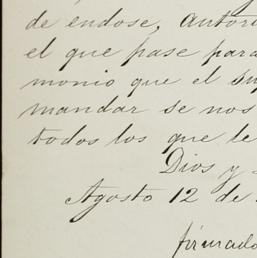 de endose, autori
el que pase para
monio que el Sup
mandar se nos
todos los que le
Dios y
Agosto 12 de
firmado